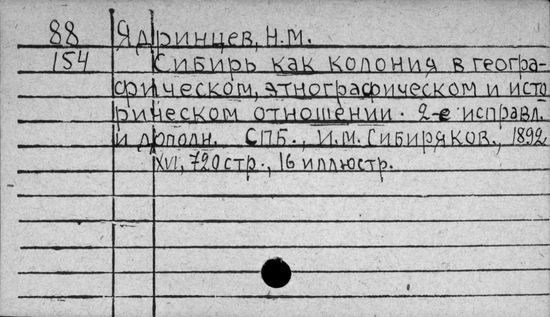 88 Ядринцев, Н.М.
154 Сибирь как колония в геогра-
фическом, этнографическом и исто
рическом отношении. 2-е исправл.
и дополн. СПБ., И.М. Сибиряков., 1892
XVI, 720 стр., 16 иллюстр.